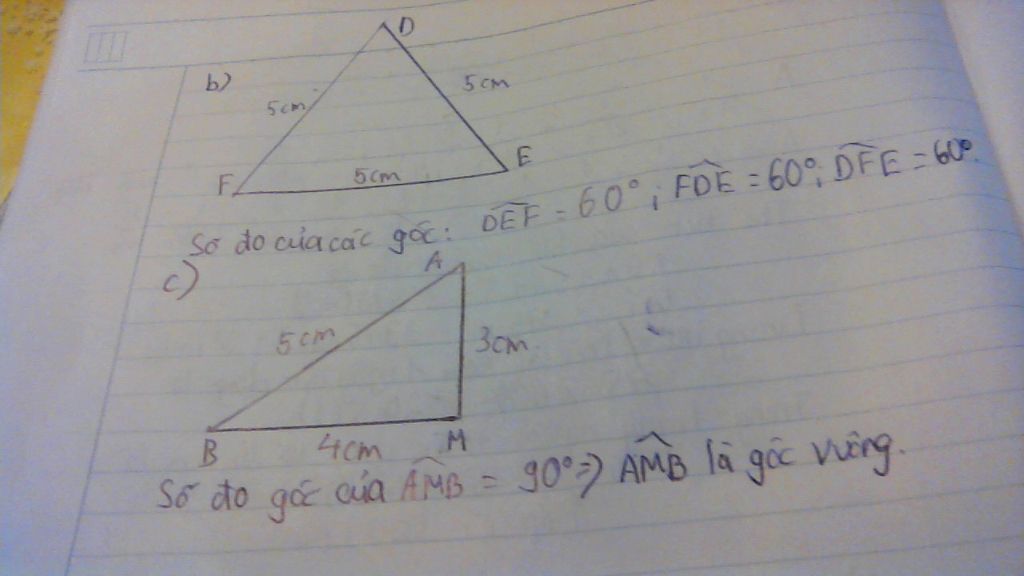 D
b)
5cm
5cm
F
5cm
E
Số đo của các góc: DEF = 60°; FDE = 60°; DFE = 60°.
c)
A
5cm
3cm
B
4cm
M
Số đo góc của AMB = 90° => AMB là góc vuông.